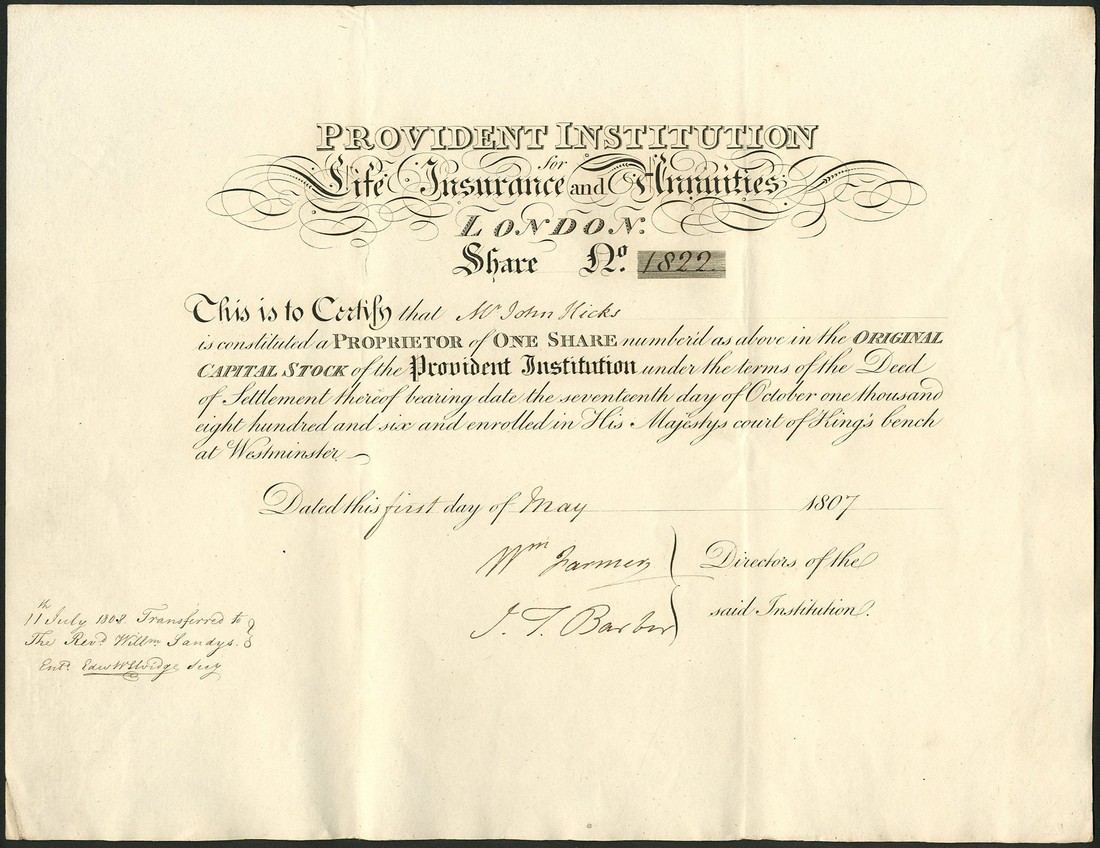 PROVIDENT INSTITUTION
for
Life Insurance and Annuities
LONDON.
Share No. 1822.
This is to Certify that Mr John Hicks
is constituted a PROPRIETOR of ONE SHARE number'd as above in the ORIGINAL
CAPITAL STOCK of the Provident Institution under the terms of the Deed
of Settlement thereof bearing date the seventeenth day of October one thousand
eight hundred and six and enrolled in His Majestys court of King's bench
at Westminster
Dated this first day of May 1807
Wm Farmer Directors of the
J. T. Barber said Institution.
11th July 1808 Transferred to
The Revd. Willm. Sandys.
Entd.